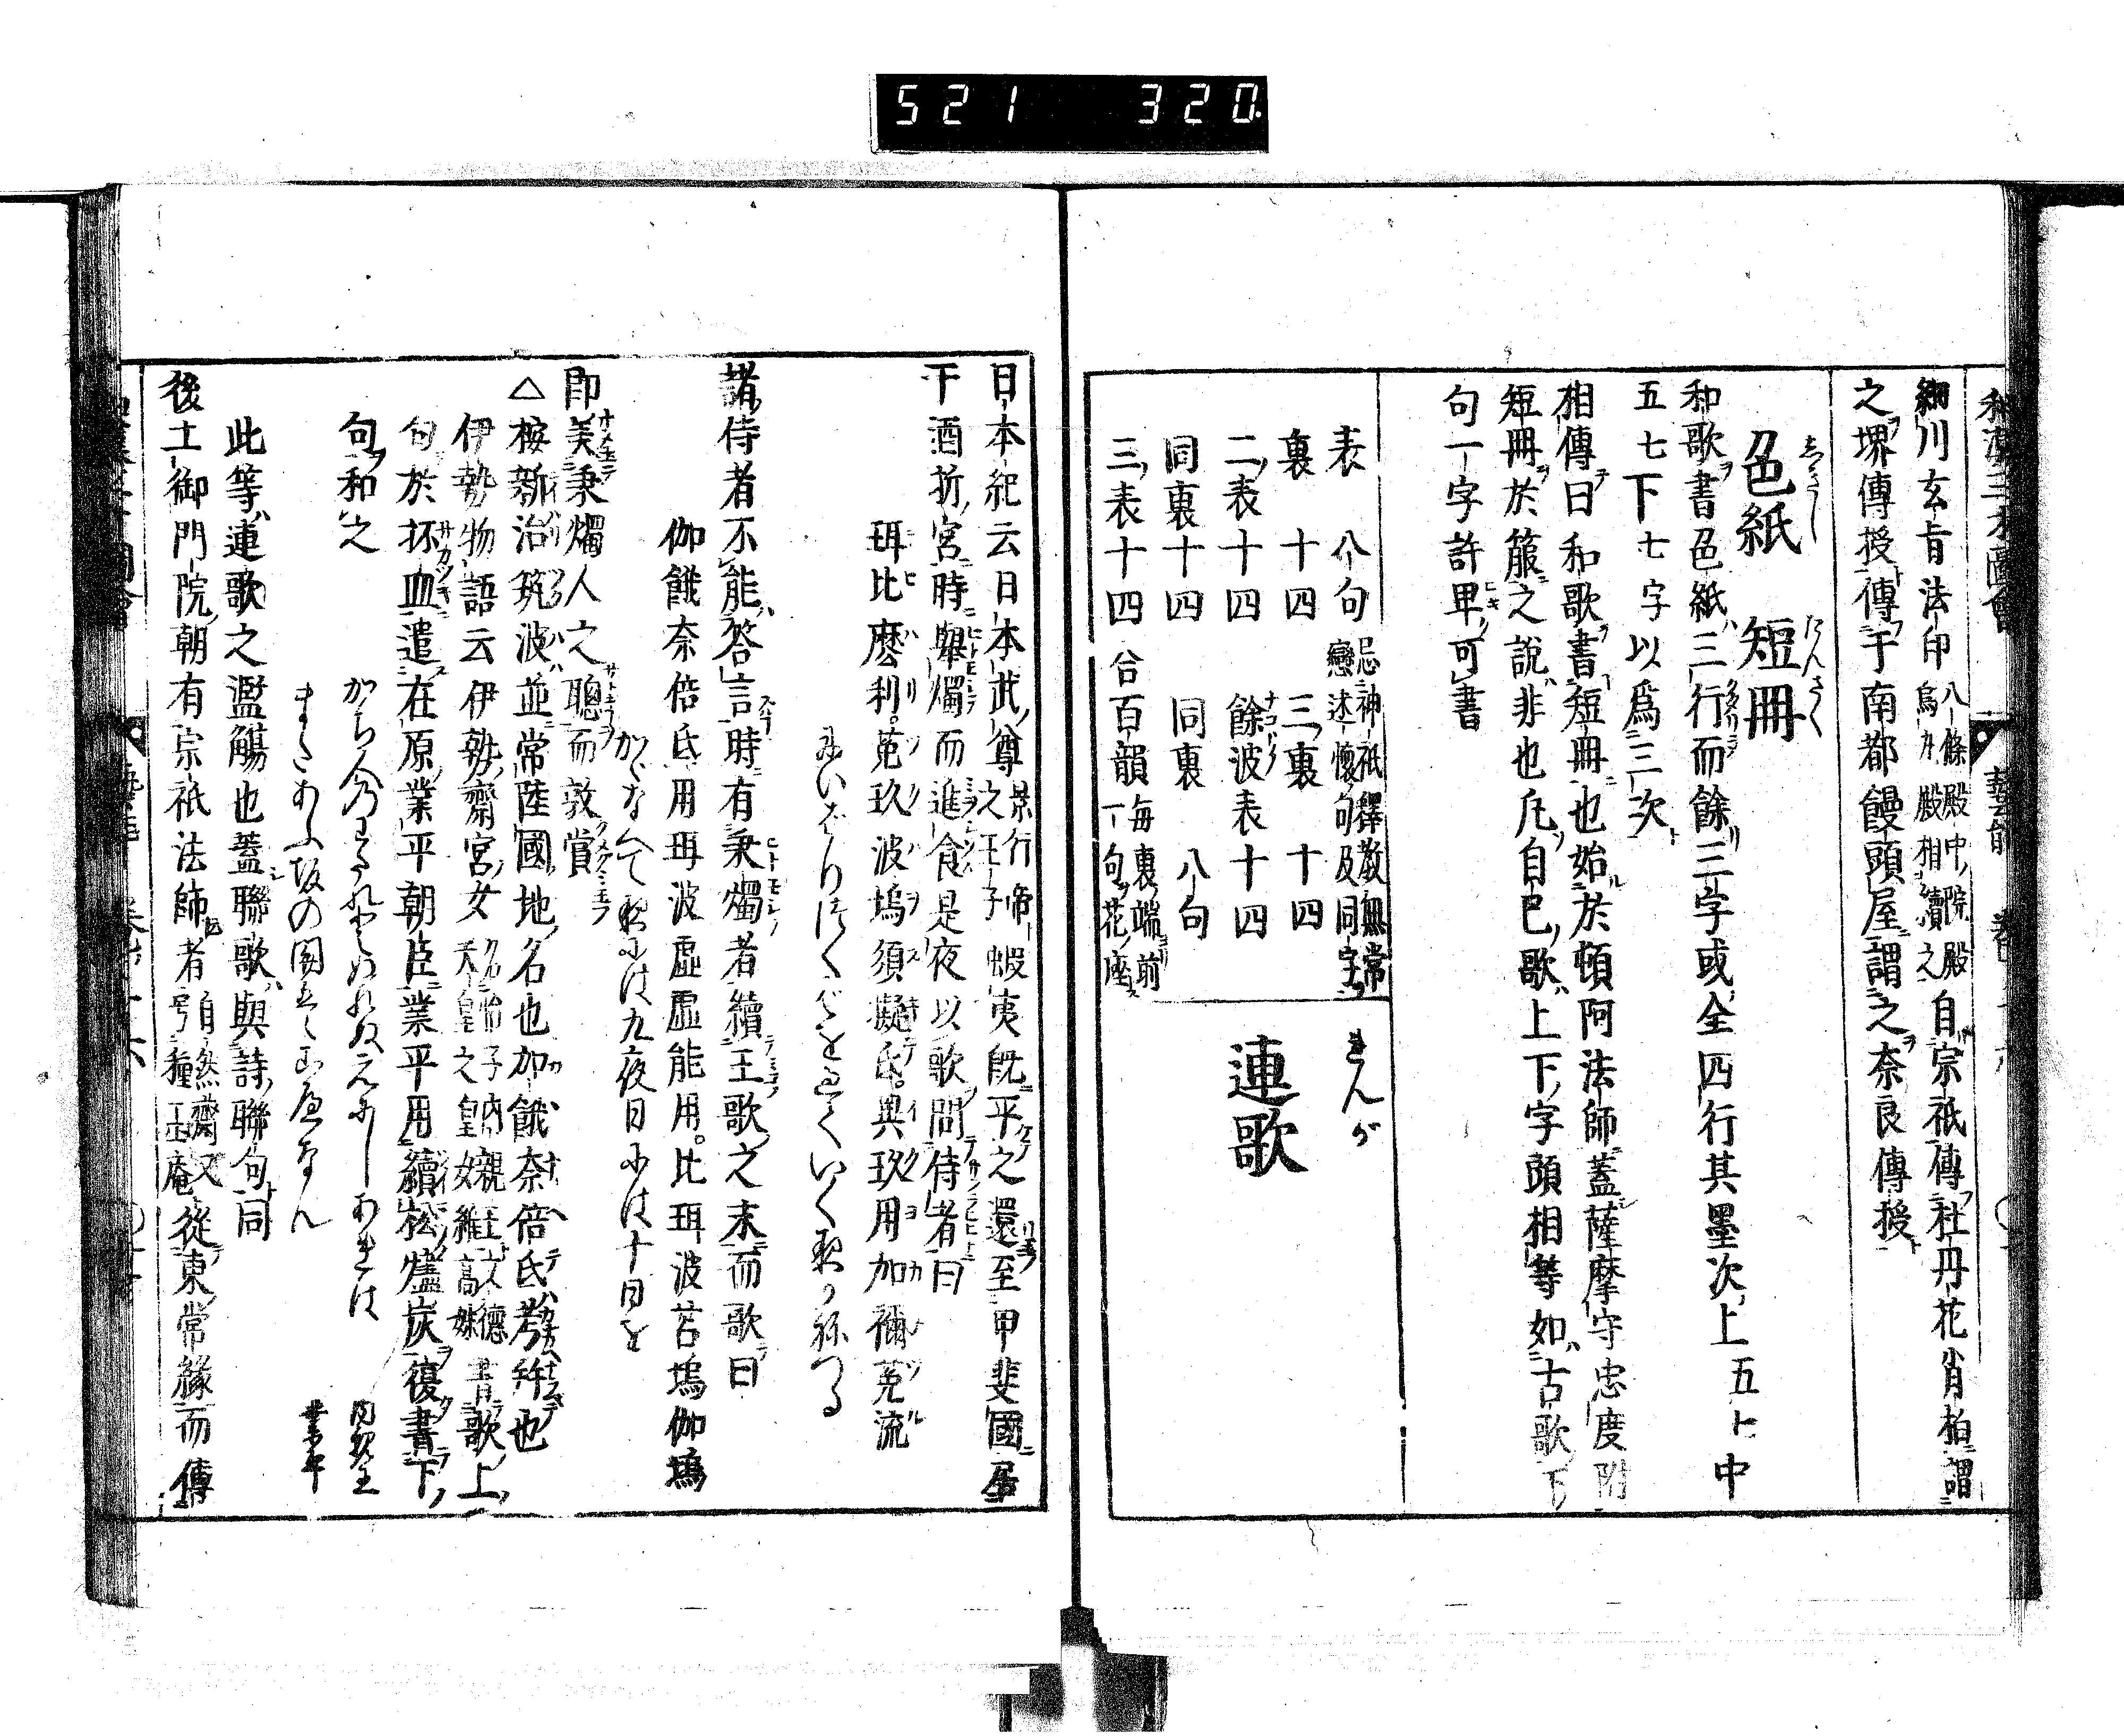 521 320
和漢三才圖會 藝能
細川玄旨法印八條殿中院殿烏丸殿相續之自宗祇傳牡丹花肖柏謂
之堺傳授傳于南都饅頭屋謂之奈良傳授
色紙 短冊
和歌書色紙三行而餘三字或全四行其墨次上五ト中
五七下七字以爲三次
相傳曰和歌書短冊也始於頓阿法師蓋薩摩守忠度附
短冊於箙之說非也凡自己歌上下字頭相等如古歌下
句一字許卑可書
れんが
連歌
表 八句 忌神祇釋教無常戀述懷句及同字
裏 十四 三裏 十四
二表十四 餘波表十四
同裏十四 同裏 八句
三表十四 合百韻 每裏端前一句花座
日本紀云日本武尊景行帝之王子蝦夷既平之還至甲斐國居
于酒折宮時擧燭而進食是夜以歌問侍者曰
珥比麼利菟玖波塢須擬氐異玖用加禰菟流
諸侍者不能答言時有秉燭者續王歌之末而歌曰
伽餓奈倍氐用珥波虛虛能用比珥波苔塢伽塢
かゞなべて夜には九夜日には十日を
即美秉燭人之聰而敦賞
△按新治筑波並常陸國地名也加餓奈倍氐考辨也
伊勢物語云伊勢齋宮女書歌上
句於坏皿遣在原業平朝臣業平用續松爐炭復書下
句和之
かち人のわたれどぬれぬえにしあれば
またあふ坂の關はこえなん 業平
此等連歌之濫觴也蓋聯歌與詩聯句同
後土御門院朝有宗祇法師者自然齋又号種玉庵從東常緣而傳